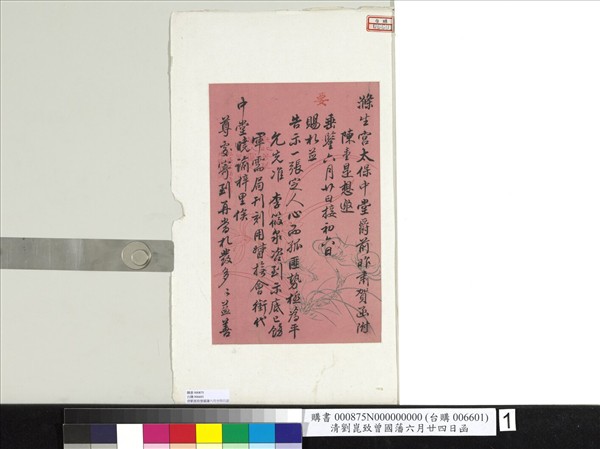 滌生宮太保中堂爵前昨肅賀函附
陳重星想邀
垂鑒六月廿日接初六日
賜札並
告示一張定人心而孤匪勢極為平
允先准李筱泉咨到示底已飭
軍需局刊刻用暫接會銜代
中堂曉諭梓里俟
尊處寄到再當札發多多益善
購書 000875N000000000 (台購 006601)
清劉崑致曾國藩六月廿四日函
1